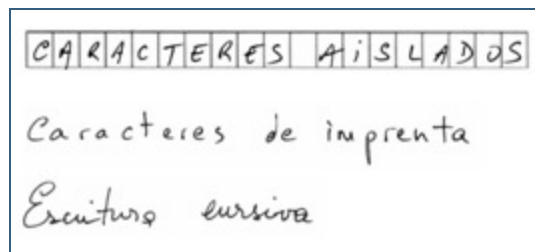 CARACTERES AiSLADOS
Caracteres de imprenta
Escritura cursiva